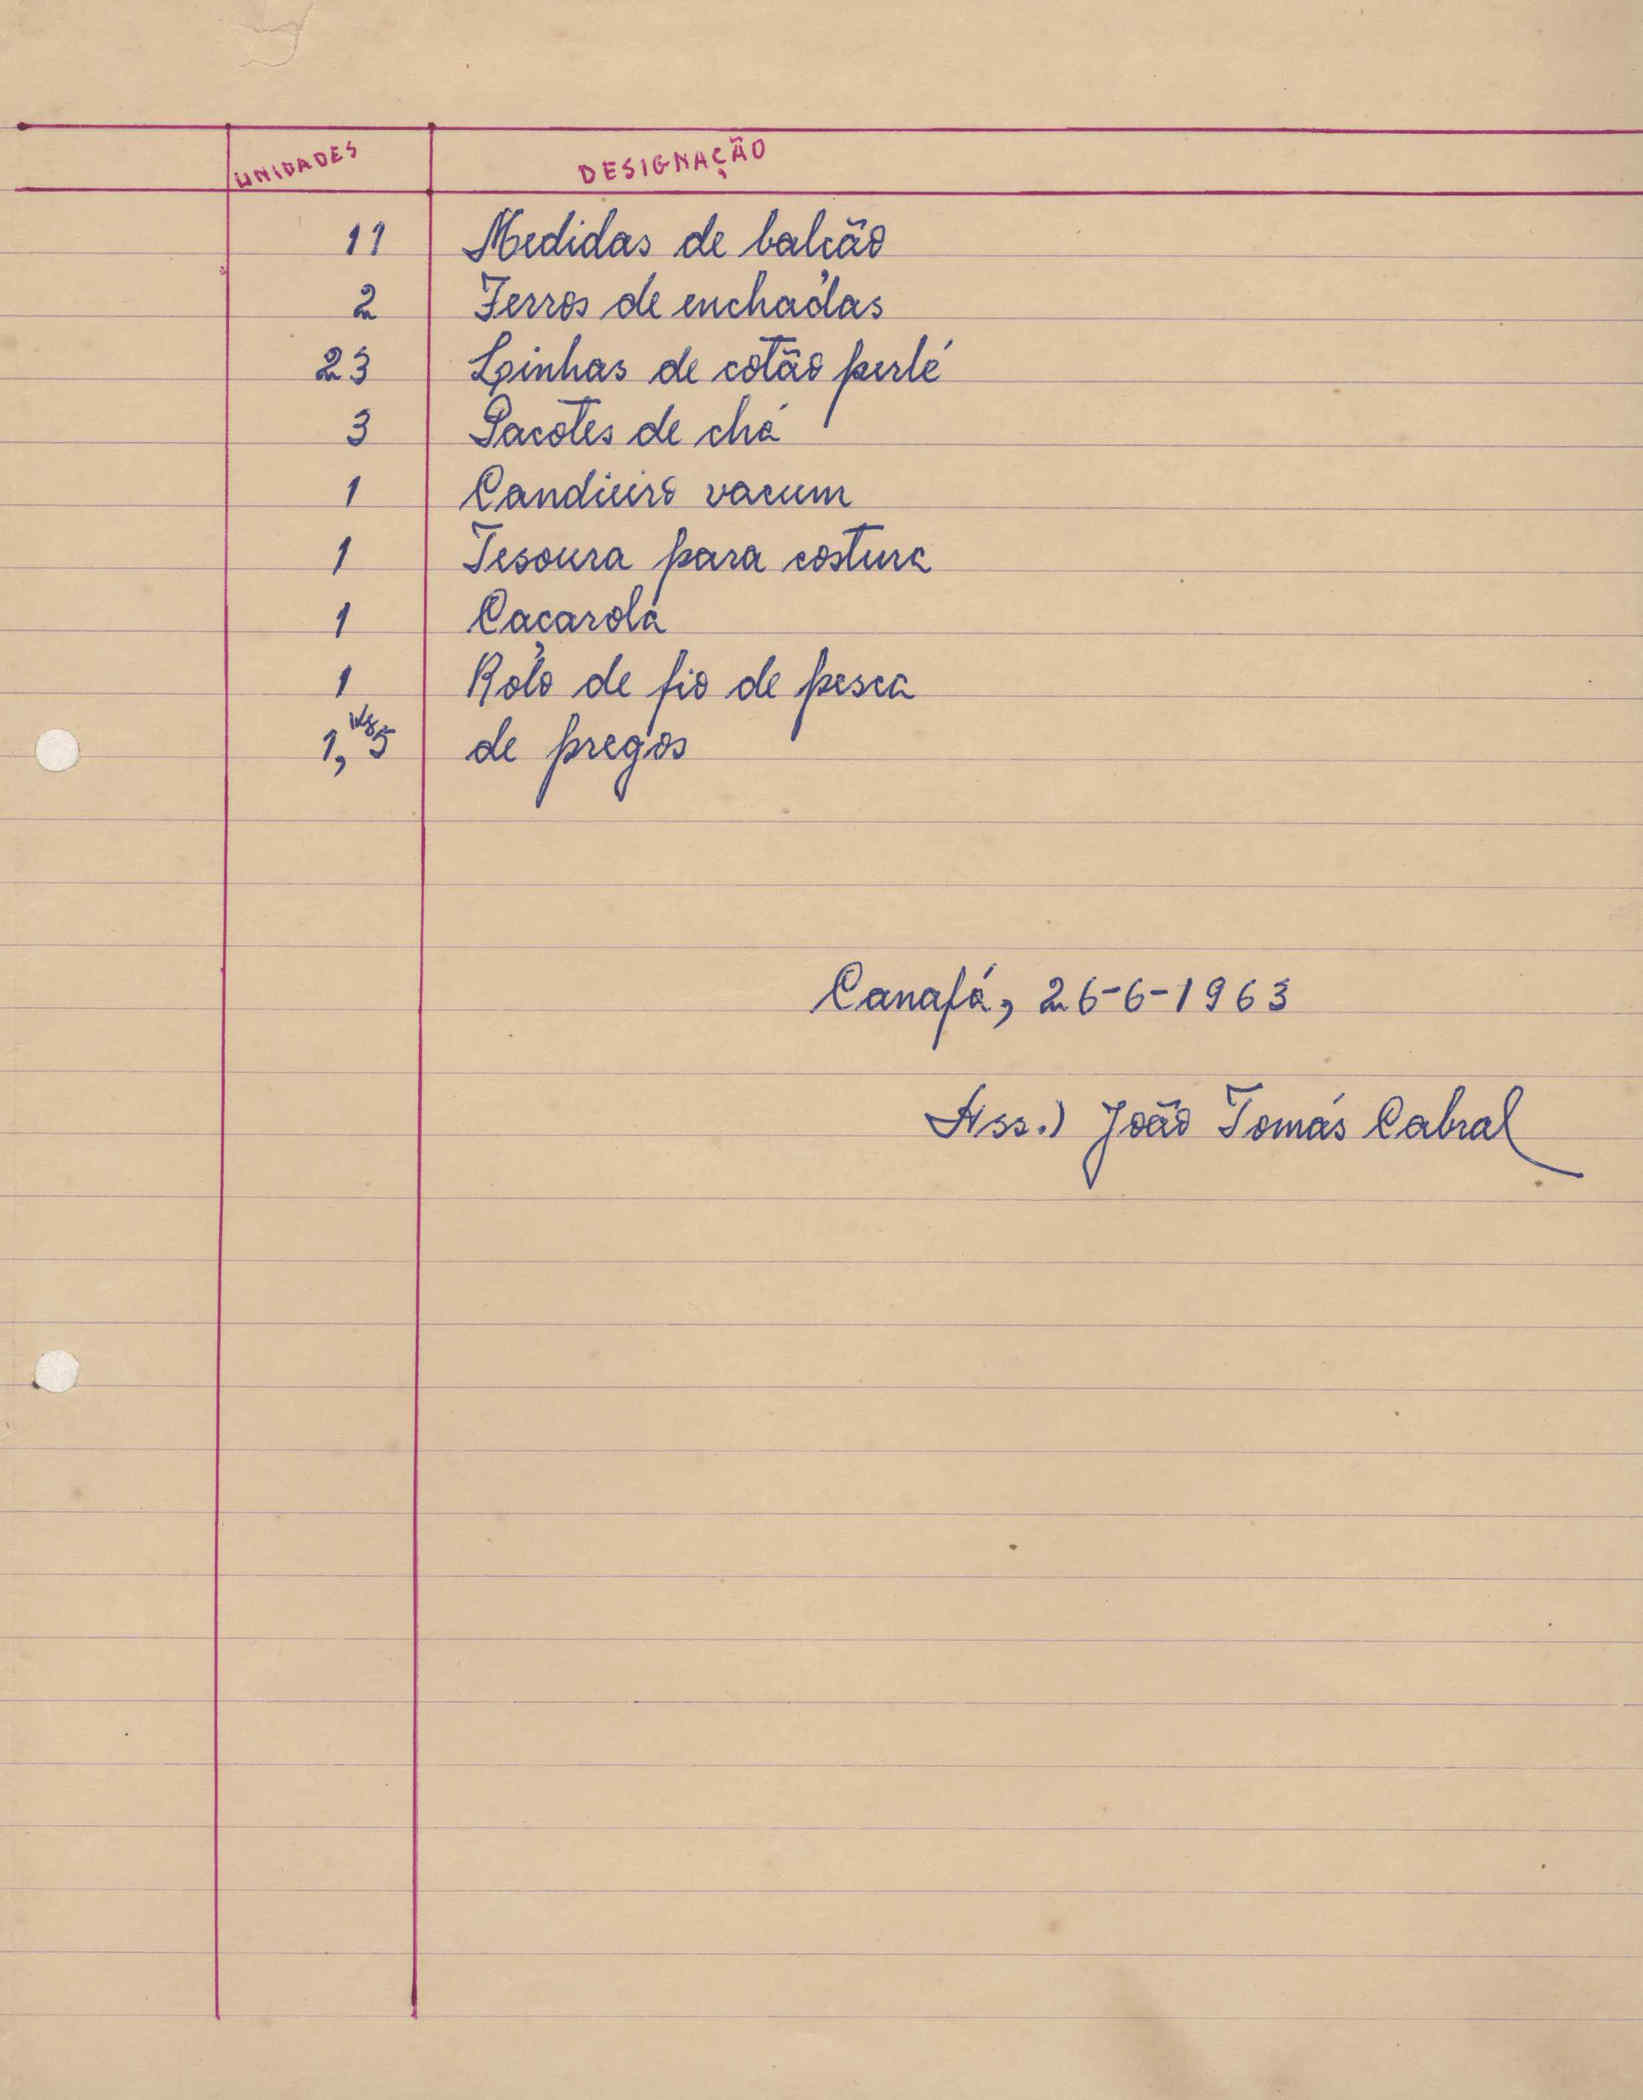 UNIDADES DESIGNAÇÃO
11 Medidas de balcão
2 Ferros de enchadas
23 Linhas de cotão perlé
3 Pacotes de chá
1 Candieiro vacum
1 Tesoura para costura
1 Caçarola
1 Rôlo de fio de pesca
1,kg5 de pregos
Canafá, 26-6-1963
Ass.) João Tomás Cabral